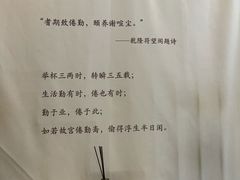 “耆期致倦勤，颐养谢喧尘。”
——乾隆符望阁题诗
举杯三两时，转瞬三五载；
生活勤有时，倦也有时；
勤于业，倦于此；
如若故宫倦勤斋，偷得浮生半日闲。